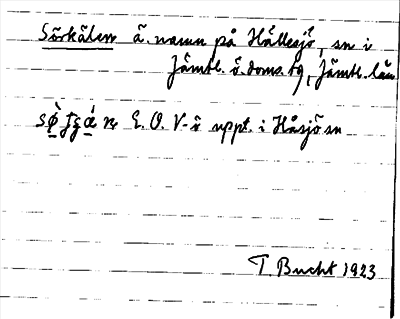 Sörkälen ä. namn på Hällesjö, sn i
Jämtl. ö. doms. tg, Jämtl. län
E. O. V-ö uppt. i Håsjö sn
T. Bucht 1923